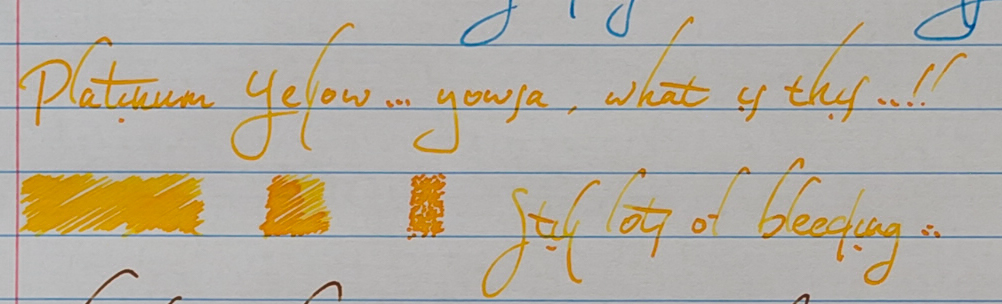 Platinum Yellow... yowsa, what is this..!!
Still lots of bleeding...